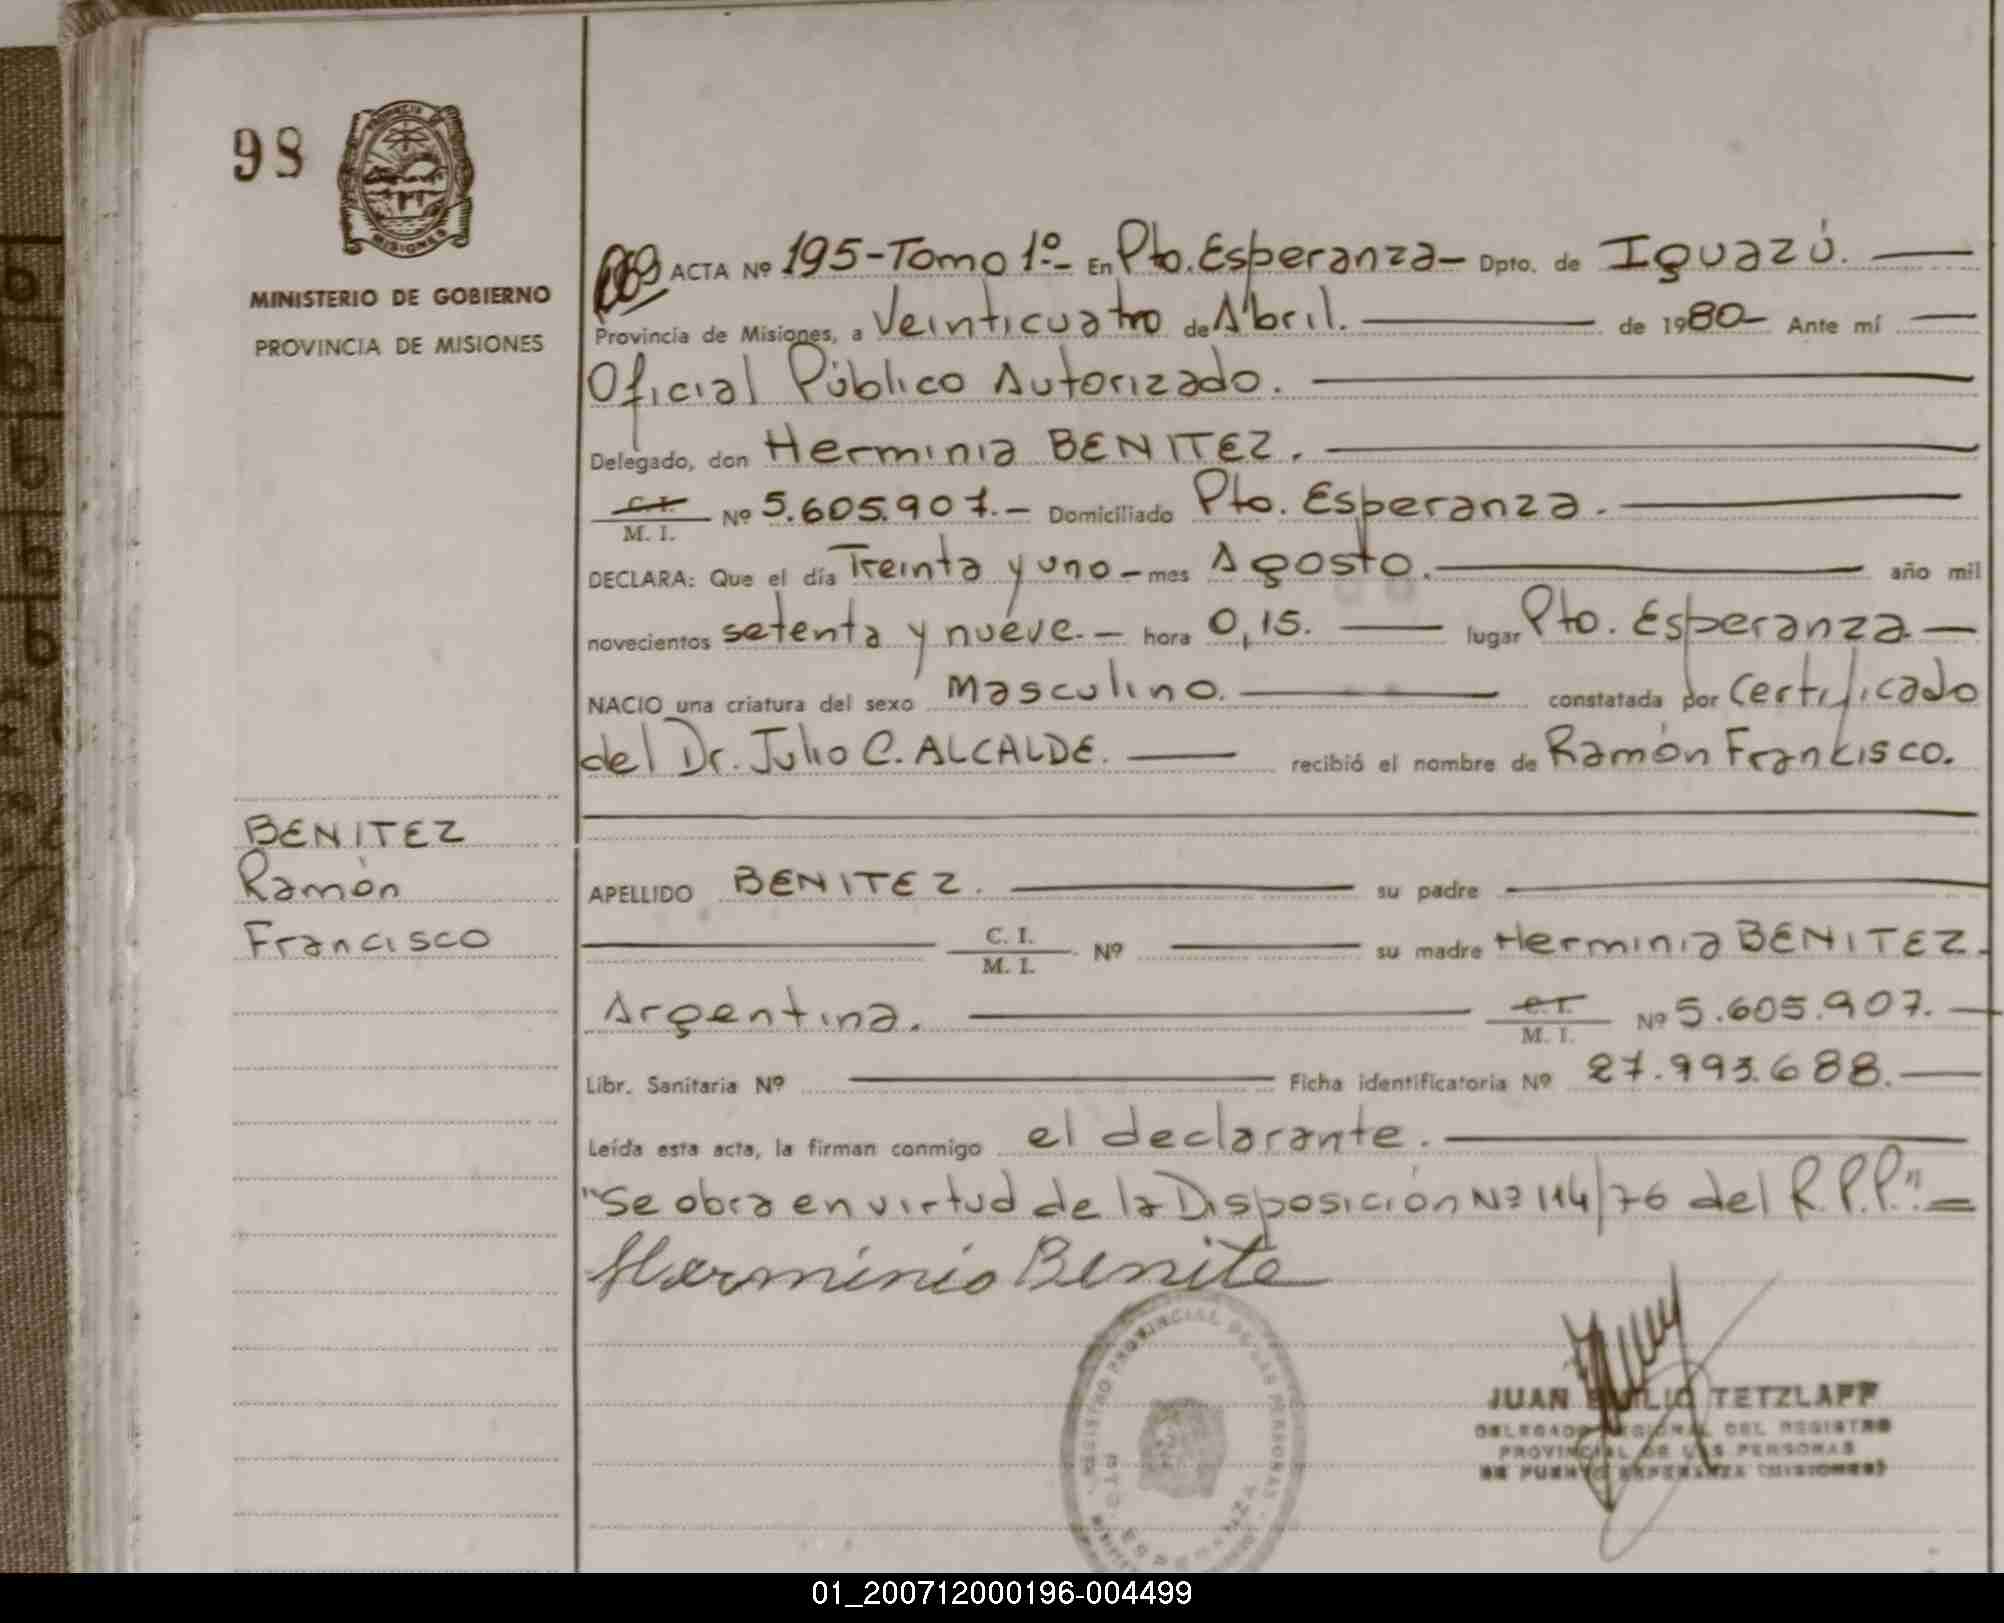 98
PROVINCIA DE
MISIONES
MINISTERIO DE GOBIERNO
PROVINCIA DE MISIONES
ACTA Nº 195-Tomo 1º- En Pto. Esperanza- Dpto. de Iguazú.
Provincia de Misiones, a Veinticuatro de Abril. de 1980- Ante mí
Oficial Público Autorizado.
Delegado, don Herminia BENITEZ.
C. I.
M. I. Nº 5.605.907.- Domiciliado Pto. Esperanza.
DECLARA: Que el día Treinta y uno- mes Agosto. año mil
novecientos setenta y nueve.- hora 0,15. lugar Pto. Esperanza-
NACIO una criatura del sexo Masculino. constatada por Certificado
del Dr. Julio C. ALCALDE. recibió el nombre de Ramón Francisco.
BENITEZ
Ramón
Francisco
APELLIDO BENITEZ. su padre
C. I.
M. I. Nº su madre Herminia BENITEZ.
Argentina. C. I.
M. I. Nº 5.605.907.
Libr. Sanitaria Nº Ficha identificatoria Nº 27.993.688.
Leída esta acta, la firman conmigo el declarante.
"Se obra en virtud de la Disposición Nº 114/76 del R.P.P."=
Herminio Benite
REGISTRO PROVINCIAL DE LAS PERSONAS
JUAN EMILIO TETZLAFF
DELEGADO REGIONAL DEL REGISTRO
PROVINCIAL DE LAS PERSONAS
DE PUERTO ESPERANZA (MISIONES)
01_200712000196-004499